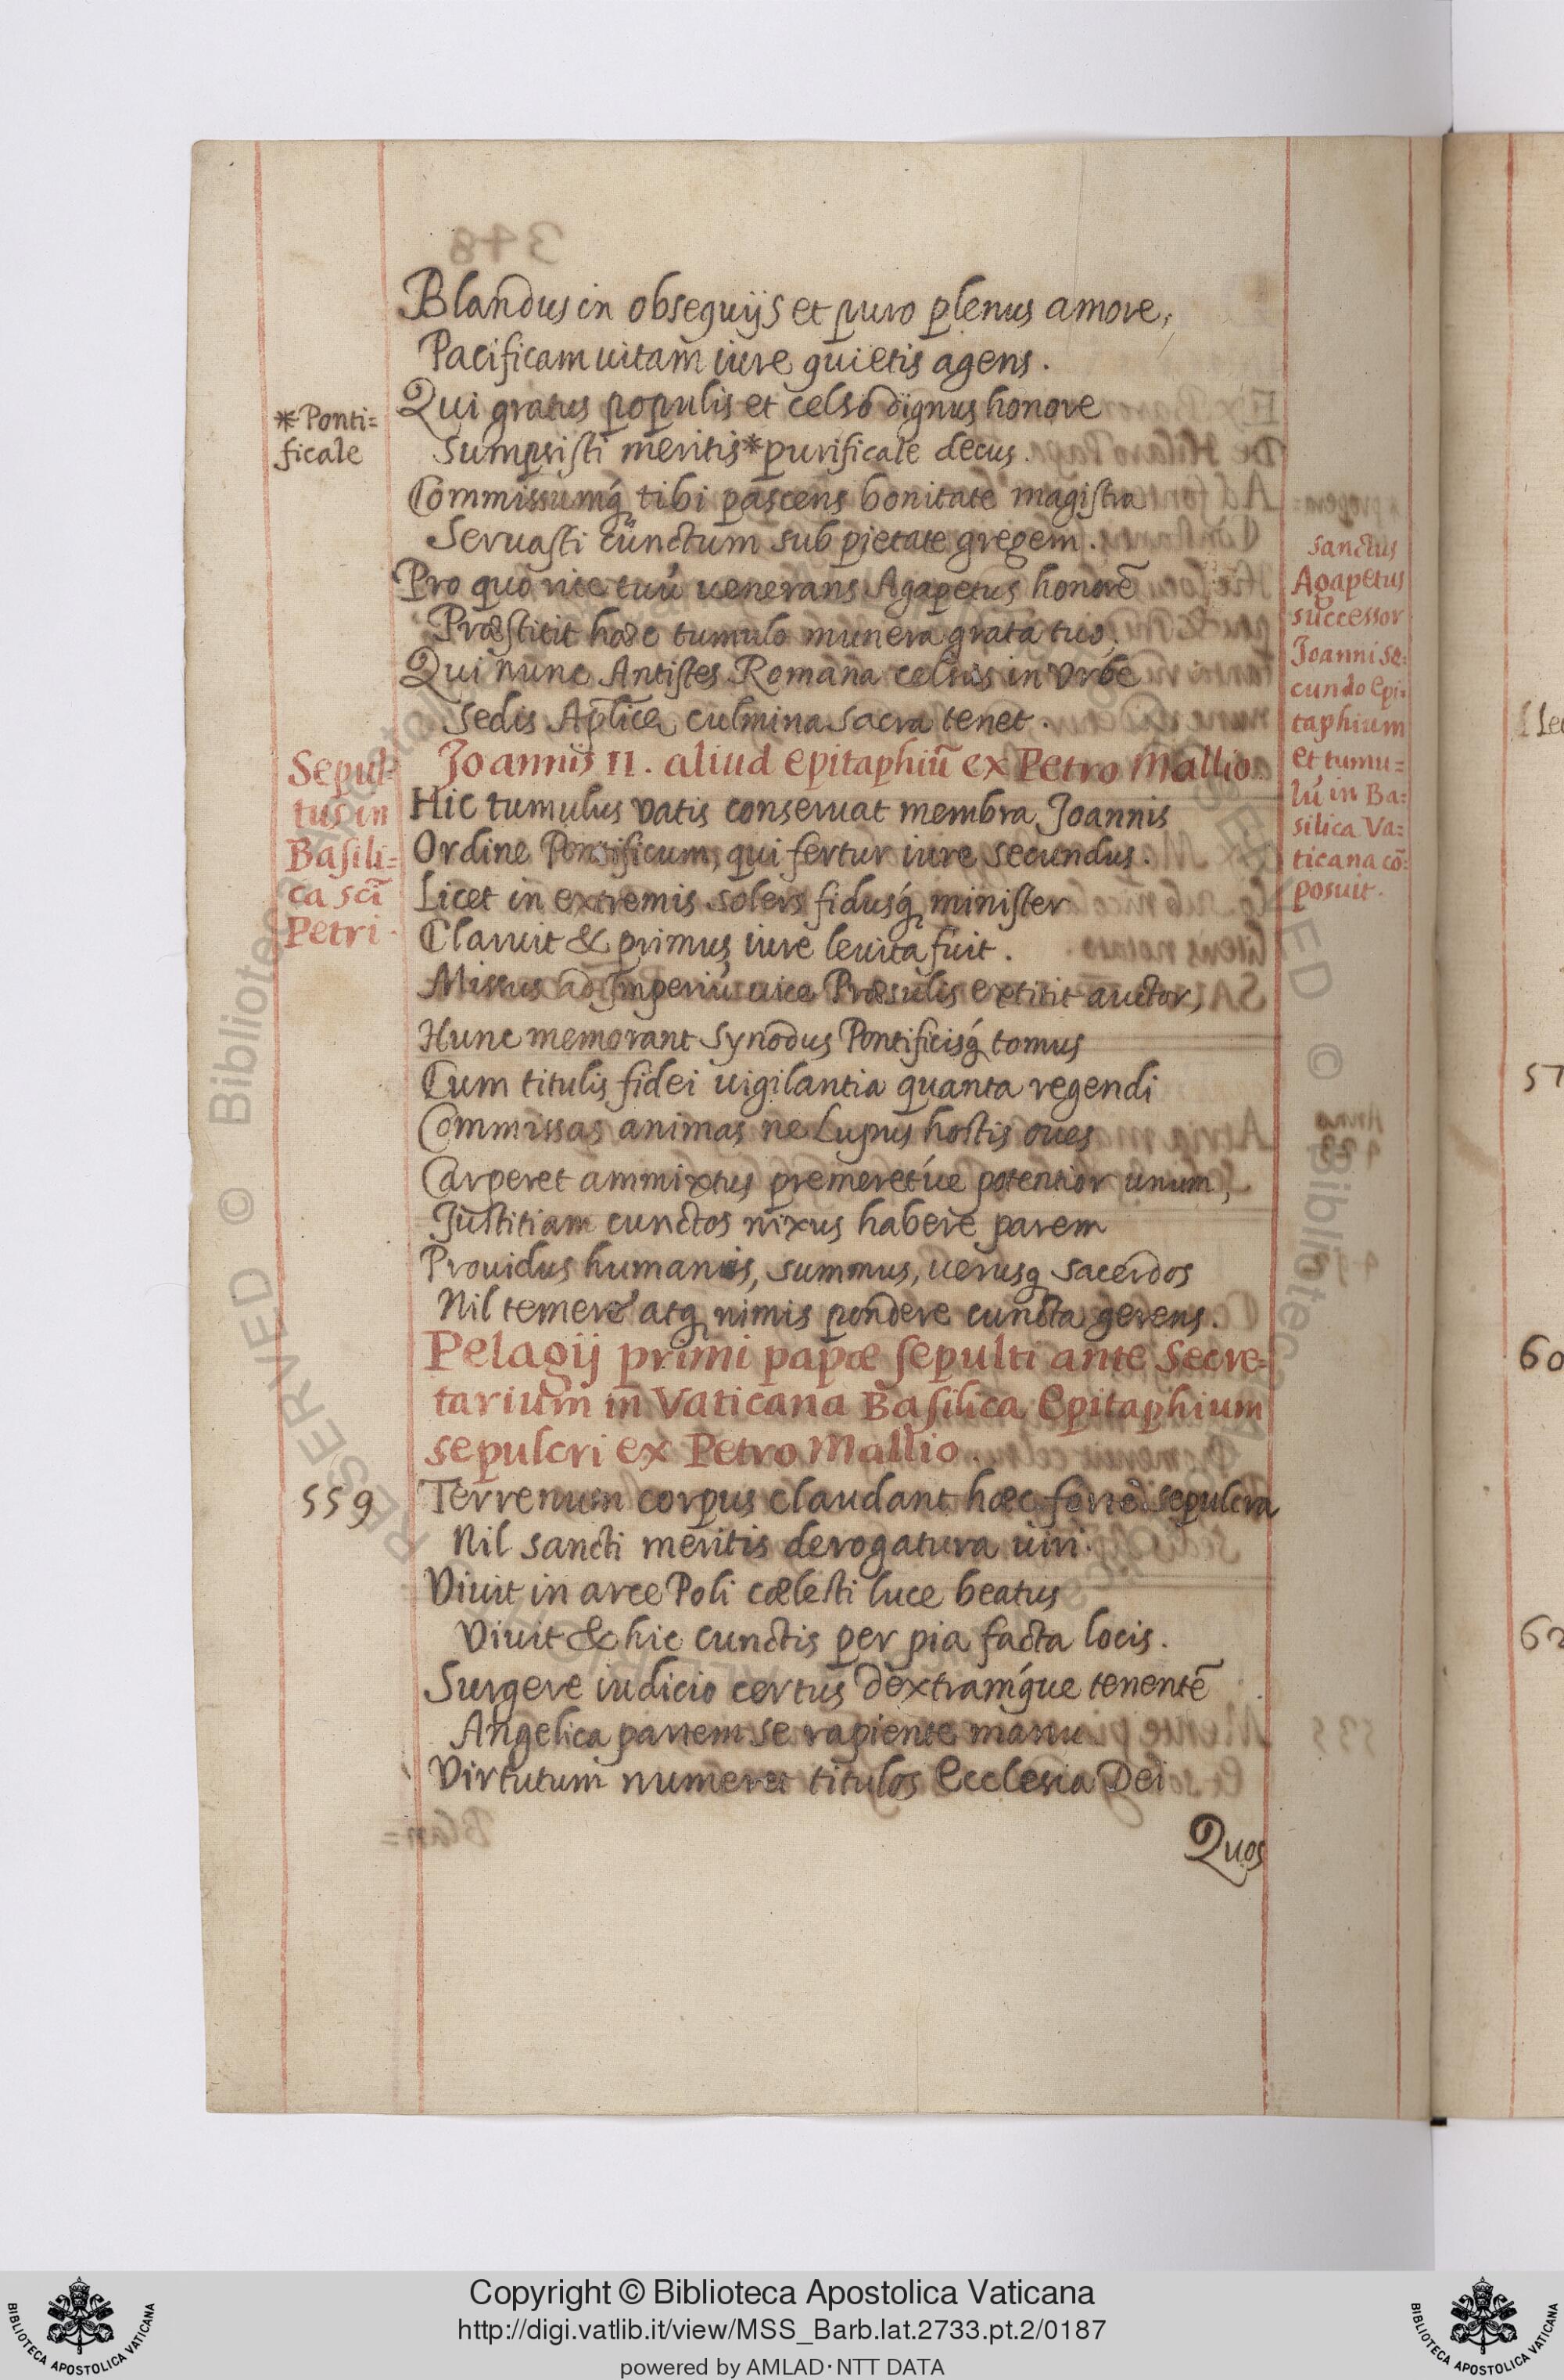 Blandus in obsequijs et puro plenus amore,
Pacificam uitam iure quietis agens.
*Ponti=
ficale
Qui gratus populis et celso dignus honore
Sumpsisti meritis*purificale decus.
Commissumq́ tibi pascens bonitate magistra
Seruasti cunctum sub pietate gregem.
Pro quo rite tuú uenerans Agapetus honorē
Præstitit hæc tumulo munera grata tuo,
Qui nunc Antistes Romana celsus in Vrbe
Sedis Aplicę culmina sacra tenet.
sanctus
Agapetus
successor
Joanni se:
cundo epi:
taphium
et tumu=
lú in Ba:
silica Va:
ticana cō:
posuit.
Joannis II. aliud epitaphiū ex Petro Mallio.
Sepul=
tus in
Basili=
ca sci
Petri.
Hic tumulus vatis conseruat membra Joannis
Ordine Pontificum, qui fertur iure secundus.
Licet in extremis solers fidusq́ minister
Claruit & primus iure leuita fuit.
Missus ad Imperiú uice Præsulis extitit auctor,
Hunc memorant Synodus Pontificisq́ tomus
Cum titulis fidei uigilantia quanta regendi
Commissas animas ne Lupus hostis oues
Carperet ammixtus premeretúe potentior unum,
Justitiam cunctos nixus habere parem
Prouidus humanis, summus, uerusq sacerdos
Nil temere atq nimis pondere cuncta gerens.
Pelagij primi papæ sepulti ante Secre=
tarium in Vaticana Basilica Epitaphium
sepulcri ex Petro Mallio.
559
Terrenum corpus claudant hæc forte sepulcra
Nil sancti meritis derogatura uiri.
Viuit in arce Poli cælesti luce beatus
Viuit & hic cunctis per pia facta locis.
Surgere iudicio certus dextramq́ue tenentē
Angelica partem se rapiente manu
Virtutum numeret titulos Ecclesia Dei
Quos
57
60
62
Copyright © Biblioteca Apostolica Vaticana
http://digi.vatlib.it/view/MSS_Barb.lat.2733.pt.2/0187
powered by AMLAD·NTT DATA
BIBLIOTECA APOSTOLICA VATICANA
BIBLIOTECA APOSTOLICA VATICANA